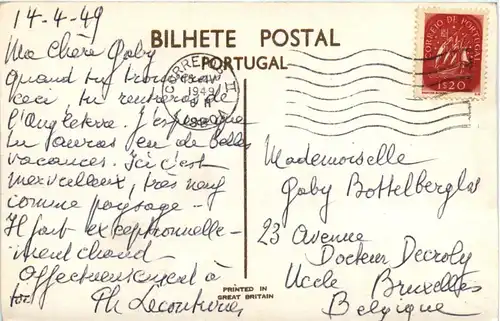 14-4-49
BILHETE POSTAL
PORTUGAL
CORREIO DE PORTUGAL
1$20
1949
Ma Chère Gaby
quand tu trouveras
ceci, tu rentreras de
l'Angleterre. J'espère que
tu auras eu de belles
vacances. Ici c'est
merveilleux, très neuf
comme paysage --
Il fait exceptionnelle-
ment chaud -
Affectueusement à
toi
Mademoiselle
Gaby
23 Avenue
Docteur Decroly
Uccle Bruxelles
Belgique
PRINTED IN
GREAT BRITAIN